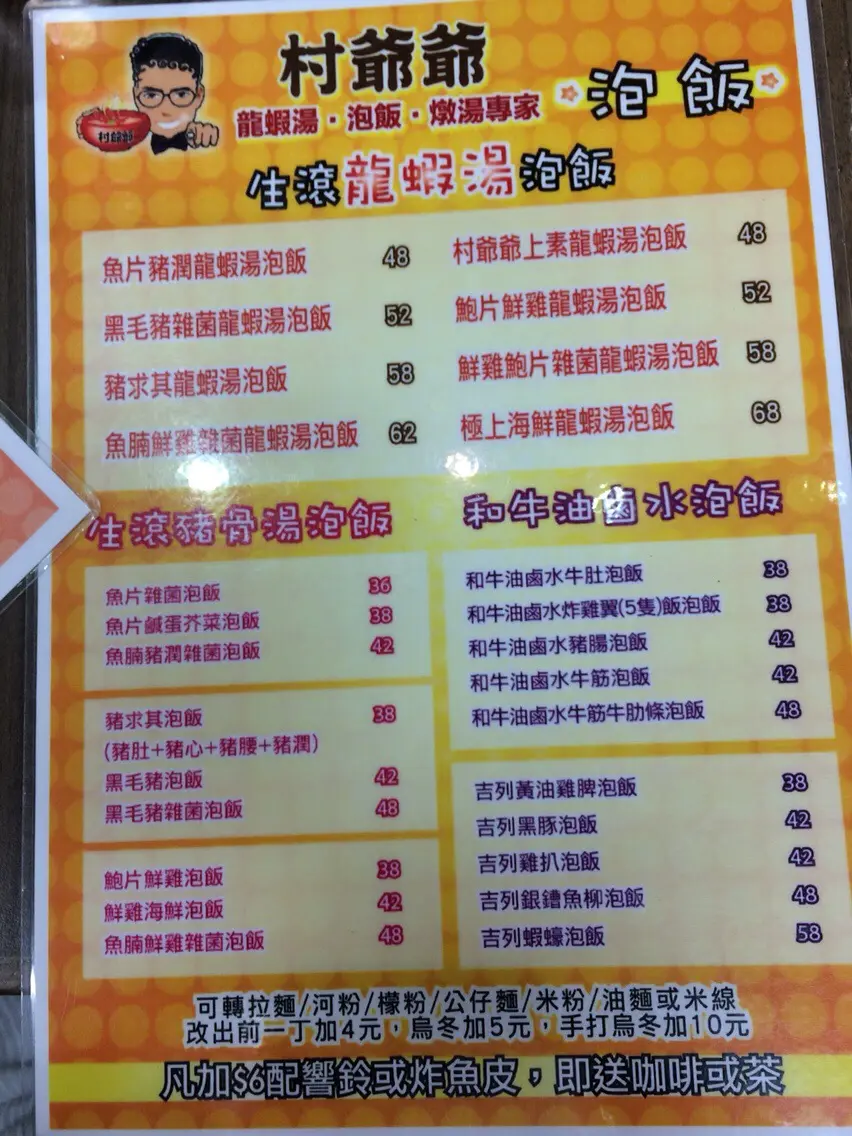 村爺爺
村爺爺
龍蝦湯・泡飯・燉湯專家
泡飯
生滾龍蝦湯泡飯
魚片豬潤龍蝦湯泡飯 48
黑毛豬雜菌龍蝦湯泡飯 52
豬求其龍蝦湯泡飯 58
魚腩鮮雞雜菌龍蝦湯泡飯 62
村爺爺上素龍蝦湯泡飯 48
鮑片鮮雞龍蝦湯泡飯 52
鮮雞鮑片雜菌龍蝦湯泡飯 58
極上海鮮龍蝦湯泡飯 68
生滾豬骨湯泡飯
魚片雜菌泡飯 36
魚片鹹蛋芥菜泡飯 38
魚腩豬潤雜菌泡飯 42
豬求其泡飯 38
(豬肚+豬心+豬腰+豬潤)
黑毛豬泡飯 42
黑毛豬雜菌泡飯 48
鮑片鮮雞泡飯 38
鮮雞海鮮泡飯 42
魚腩鮮雞雜菌泡飯 48
和牛油鹵水泡飯
和牛油鹵水牛肚泡飯 38
和牛油鹵水炸雞翼(5隻)飯泡飯 38
和牛油鹵水豬腸泡飯 42
和牛油鹵水牛筋泡飯 42
和牛油鹵水牛筋牛肋條泡飯 48
吉列黃油雞脾泡飯 38
吉列黑豚泡飯 42
吉列雞扒泡飯 42
吉列銀鱈魚柳泡飯 48
吉列蝦蠔泡飯 58
可轉拉麵/河粉/檬粉/公仔麵/米粉/油麵或米線
改出前一丁加4元，烏冬加5元，手打烏冬加10元
凡加$6配響鈴或炸魚皮，即送咖啡或茶